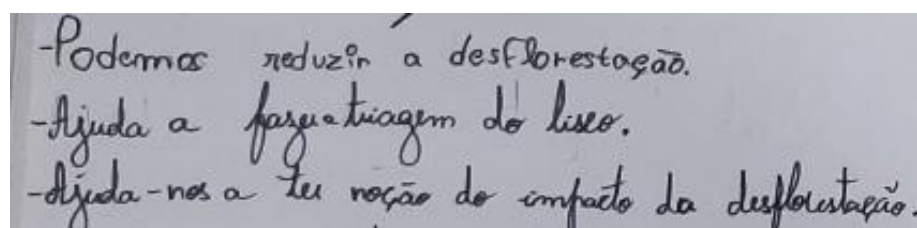 -Podemos reduzir a desflorestação.
-Ajuda a fazer a triagem do lixo.
-Ajuda-nos a ter noção do impacto da desflorestação.